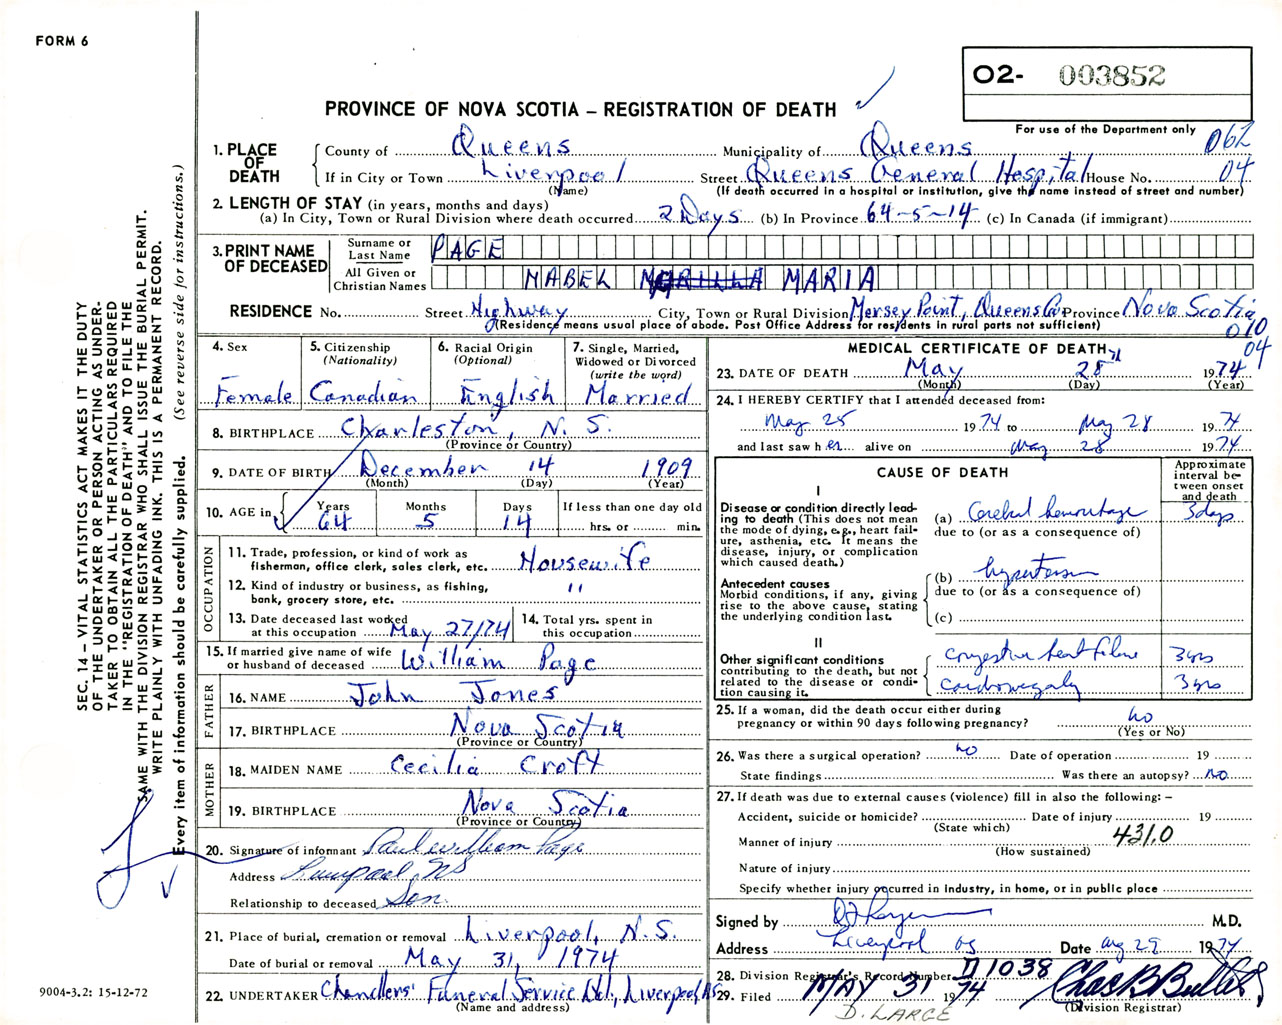 FORM 6
O2- 003852
PROVINCE OF NOVA SCOTIA – REGISTRATION OF DEATH
For use of the Department only
062
04
1. PLACE OF DEATH
County of Queens Municipality of Queens
If in City or Town Liverpool Street Queens General Hospital House No.
(Name) (If death occurred in a hospital or institution, give the name instead of street and number)
2. LENGTH OF STAY (in years, months and days)
(a) In City, Town or Rural Division where death occurred 2 Days (b) In Province 64-5-14 (c) In Canada (if immigrant)
3. PRINT NAME OF DECEASED
Surname or Last Name PAGE
All Given or Christian Names MABEL MARIA
RESIDENCE No. Street Highway City, Town or Rural Division Mersey Point, Queens Co. Province Nova Scotia
(Residence means usual place of abode. Post Office Address for residents in rural parts not sufficient)
010
04
4. Sex Female
5. Citizenship (Nationality) Canadian
6. Racial Origin (Optional) English
7. Single, Married, Widowed or Divorced (write the word) Married
8. BIRTHPLACE Charleston, N. S.
(Province or Country)
9. DATE OF BIRTH December 14 1909
(Month) (Day) (Year)
10. AGE in Years 64 Months 5 Days 14 If less than one day old hrs. or min.
OCCUPATION
11. Trade, profession, or kind of work as fisherman, office clerk, sales clerk, etc. Housewife
12. Kind of industry or business, as fishing, bank, grocery store, etc. "
13. Date deceased last worked at this occupation May 27/74
14. Total yrs. spent in this occupation
15. If married give name of wife or husband of deceased William Page
FATHER
16. NAME John Jones
17. BIRTHPLACE Nova Scotia
(Province or Country)
MOTHER
18. MAIDEN NAME Cecilia Croft
19. BIRTHPLACE Nova Scotia
(Province or Country)
20. Signature of informant Paul William Page
Address Liverpool, NS
Relationship to deceased Son.
21. Place of burial, cremation or removal Liverpool, N. S.
Date of burial or removal May 31, 1974
22. UNDERTAKER Chandlers' Funeral Service Ltd., Liverpool, NS
(Name and address)
MEDICAL CERTIFICATE OF DEATH
23. DATE OF DEATH May 28 1974
(Month) (Day) (Year)
24. I HEREBY CERTIFY that I attended deceased from:
May 25 1974 to May 28 1974
and last saw her alive on May 28 1974
CAUSE OF DEATH
Approximate interval between onset and death
I
Disease or condition directly leading to death (This does not mean the mode of dying, e.g., heart failure, asthenia, etc. It means the disease, injury, or complication which caused death.)
(a) Cerebral hemorrhage 3 days
due to (or as a consequence of)
Antecedent causes
Morbid conditions, if any, giving rise to the above cause, stating the underlying condition last.
(b) hypertension
due to (or as a consequence of)
(c)
II
Other significant conditions contributing to the death, but not related to the disease or condition causing it.
congestive heart failure 3 yrs
cardiomegaly 3 yrs
25. If a woman, did the death occur either during pregnancy or within 90 days following pregnancy? no
(Yes or No)
26. Was there a surgical operation? no Date of operation 19
State findings Was there an autopsy? no
27. If death was due to external causes (violence) fill in also the following: –
Accident, suicide or homicide? Date of injury 19
(State which)
431.0
Manner of injury
(How sustained)
Nature of injury
Specify whether injury occurred in industry, in home, or in public place
Signed by M.D.
Address Liverpool NS Date Aug 29 1974
28. Division Registrar's Record Number D 1038
29. Filed MAY 31 1974
(Division Registrar)
D. LARGE
SEC. 14 – VITAL STATISTICS ACT MAKES IT THE DUTY
OF THE UNDERTAKER OR PERSON ACTING AS UNDER-
TAKER TO OBTAIN ALL THE PARTICULARS REQUIRED
IN THE "REGISTRATION OF DEATH" AND TO FILE THE
SAME WITH THE DIVISION REGISTRAR WHO SHALL ISSUE THE BURIAL PERMIT.
WRITE PLAINLY WITH UNFADING INK. THIS IS A PERMANENT RECORD.
Every item of information should be carefully supplied. (See reverse side for instructions.)
9004-3.2: 15-12-72